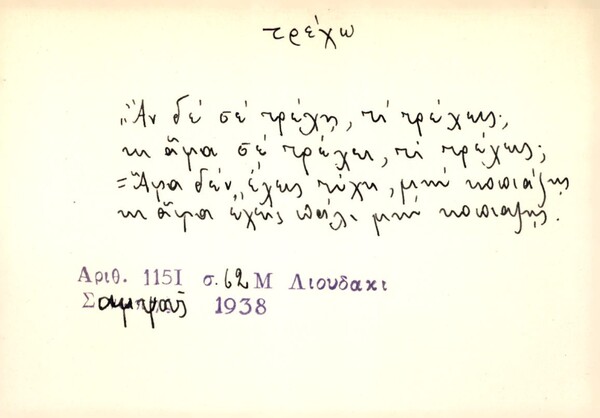 τρέχω
„Ἄν δέ σέ τρέχη, τί τρέχεις;
κι ἅμα σέ τρέχει, τί τρέχεις;
=Ἅμα δέν ἔχεις τύχη, μή κοπιάζης
κι ἅμα ἔχεις πάλι μή κοπιάζης.
Αριθ. 1151 σ. 62 Μ Λιουδακι
1938